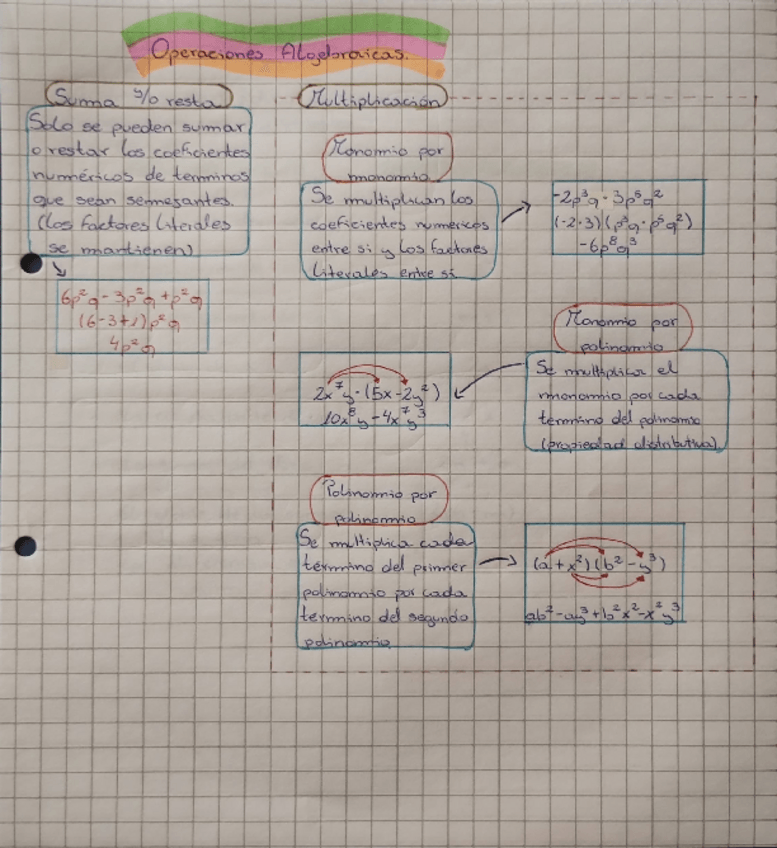 Operaciones Algebraicas.
Suma y/o resta
Solo se pueden sumar
o restar los coeficientes
numéricos de terminos
que sean semejantes.
(los factores literales
se mantienen)
6p²q - 3p²q + p²q
(6-3+1)p²q
4p²q
Multiplicación
Monomio por
monomio
Se multiplican los
coeficientes numericos
entre si y los factores
literales entre si
-2p³q · 3p⁵q²
(-2·3)(p³q·p⁵q²)
-6p⁸q³
Monomio por
polinomio
Se multiplica el
monomio por cada
término del polinomio
(propiedad distributiva).
2x⁷y · (5x - 2y²)
10x⁸y - 4x⁷y³
Polinomio por
polinomio
Se multiplica cada
término del primer
polinomio por cada
termino del segundo
polinomio
(a + x²)(b² - y³)
ab² - ay³ + b²x² - x²y³